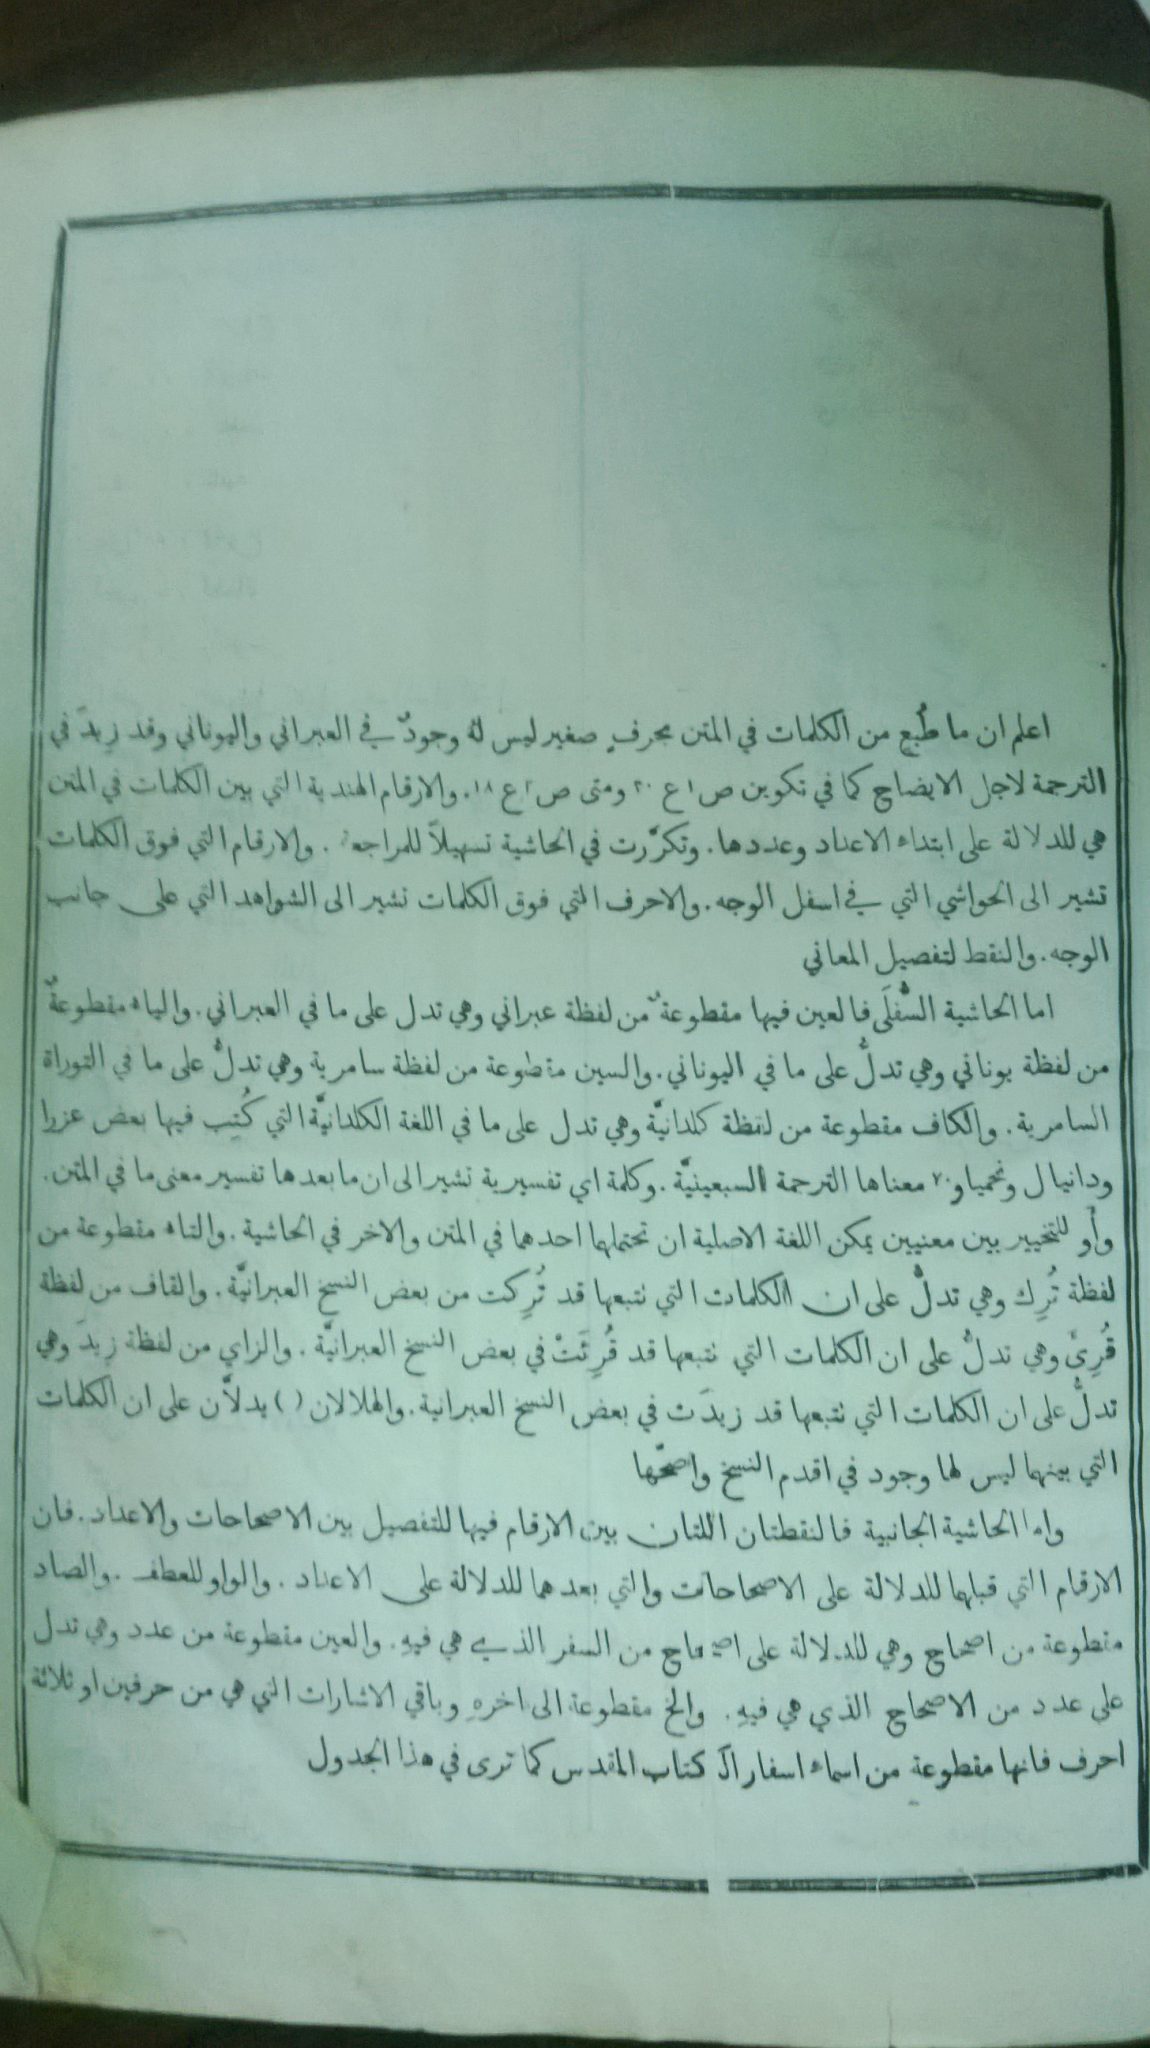 اعلم ان ما طُبع من الكلمات في المتن بحرفٍ صغير ليس لهُ وجودٌ في العبراني واليوناني وقد زِيدَ في
الترجمة لاجل الايضاح كما في تكوين ص ١ ع ٢٠ ومتى ص ٢ ع ١٨. والارقام الهندية التي بين الكلمات في المتن
هي للدلالة على ابتداء الاعداد وعددها. وتكرَّرت في الحاشية تسهيلاً للمراجعة. والارقام التي فوق الكلمات
تشير الى الحواشي التي في اسفل الوجه. والاحرف التي فوق الكلمات تشير الى الشواهد التي على جانب
الوجه. والنقط لتفصيل المعاني
اما الحاشية السُّفلَى فالعين فيها مقطوعةٌ من لفظة عبراني وهي تدل على ما في العبراني. والياء مقطوعةٌ
من لفظة يوناني وهي تدلُّ على ما في اليوناني. والسين مقطوعة من لفظة سامرية وهي تدلُّ على ما في التوراة
السامرية. والكاف مقطوعة من لفظة كلدانيَّة وهي تدل على ما في اللغة الكلدانيَّة التي كُتِب فيها بعض عزرا
ودانيال ونحميا و٧٠ معناها الترجمة السبعينيَّة. وكلمة اي تفسيرية تشير الى ان ما بعدها تفسير معنى ما في المتن.
وأو للتخيير بين معنيين يمكن اللغة الاصلية ان تحتملهما احدهما في المتن والاخر في الحاشية. والتاء مقطوعة من
لفظة تُرِك وهي تدلُّ على ان الكلمات التي تتبعها قد تُرِكت من بعض النسخ العبرانيَّة. والقاف من لفظة
قُرِئَ وهي تدلُّ على ان الكلمات التي تتبعها قد قُرِئَتْ في بعض النسخ العبرانيَّة. والزاي من لفظة زِيدَ وهي
تدلُّ على ان الكلمات التي تتبعها قد زيدَت في بعض النسخ العبرانية. والهلالان ( ) يدلاَّن على ان الكلمات
التي بينهما ليس لها وجود في اقدم النسخ واصحّها
واما الحاشية الجانبية فالنقطتان اللتان بين الارقام فيها للتفصيل بين الاصحاحات والاعداد. فان
الارقام التي قبلها للدلالة على الاصحاحات والتي بعدهما للدلالة على الاعداد. والواو للعطف. والصاد
مقطوعة من اصحاح وهي للدلالة على اصحاح من السفر الذي هي فيهِ. والعين مقطوعة من عدد وهي تدل
على عدد من الاصحاح الذي هي فيهِ. والخ مقطوعة الى اخرهِ وباقي الاشارات التي هي من حرفين او ثلاثة
احرف فانها مقطوعة من اسماء اسفار الكتاب المقدس كما ترى في هذا الجدول